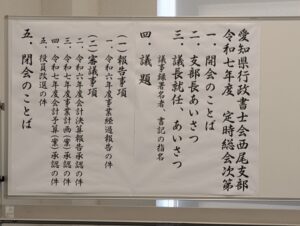 愛知県行政書士会西尾支部
令和七年度　定時総会次第
一．開会のことば
二．支部長あいさつ
三．議長就任　あいさつ
議事録署名者、書記の指名
四．議題
(一)報告事項
一．令和六年度事業経過報告の件
(二)審議事項
二．令和六年度会計決算報告承認の件
三．令和七年度事業計画(案)承認の件
四．令和七年度会計予算(案)承認の件
五．役員改選の件
五．閉会のことば